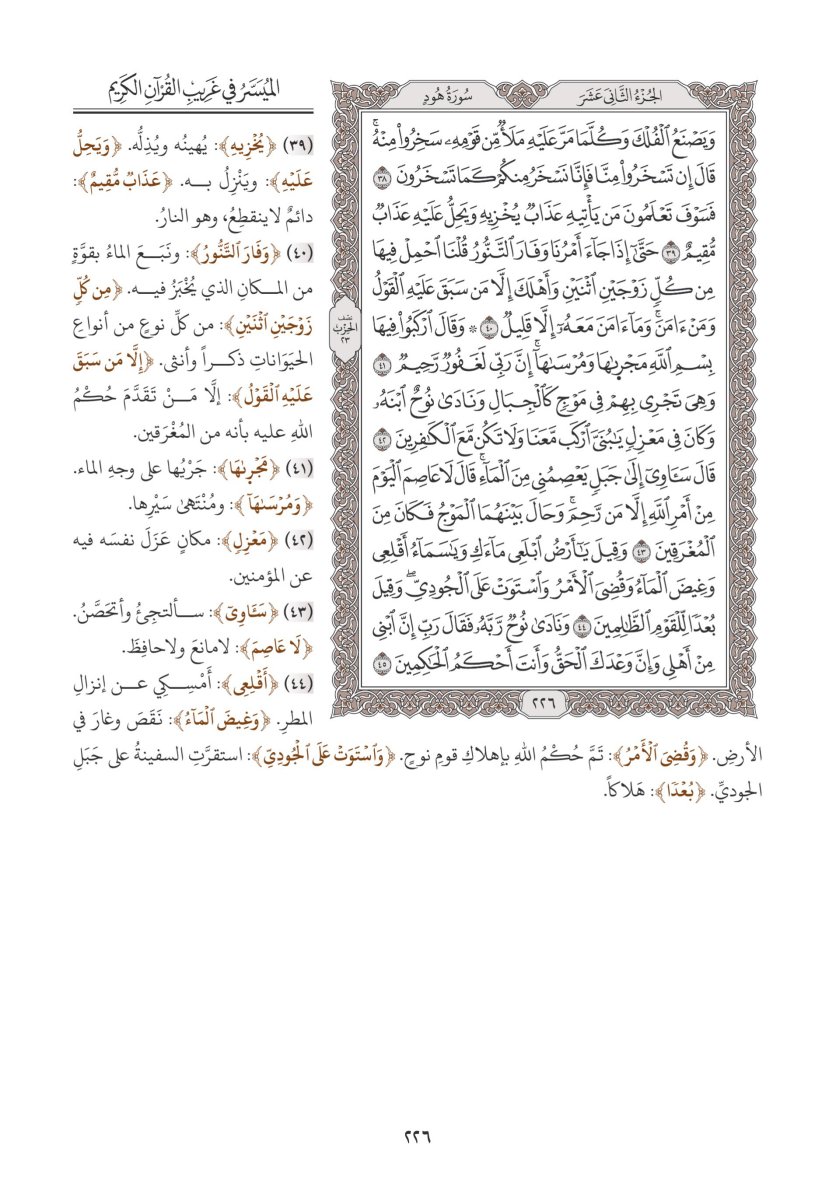 الجُزْءُ الثَّانِي عَشَرَ
سُورَةُ هُودٍ
وَيَصْنَعُ ٱلْفُلْكَ وَكُلَّمَا مَرَّ عَلَيْهِ مَلَأٌ مِّن قَوْمِهِۦ سَخِرُوا۟ مِنْهُ ۚ
قَالَ إِن تَسْخَرُوا۟ مِنَّا فَإِنَّا نَسْخَرُ مِنكُمْ كَمَا تَسْخَرُونَ ٣٨
فَسَوْفَ تَعْلَمُونَ مَن يَأْتِيهِ عَذَابٌ يُخْزِيهِ وَيَحِلُّ عَلَيْهِ عَذَابٌ
مُّقِيمٌ ٣٩ حَتَّىٰٓ إِذَا جَآءَ أَمْرُنَا وَفَارَ ٱلتَّنُّورُ قُلْنَا ٱحْمِلْ فِيهَا
مِن كُلٍّ زَوْجَيْنِ ٱثْنَيْنِ وَأَهْلَكَ إِلَّا مَن سَبَقَ عَلَيْهِ ٱلْقَوْلُ
وَمَنْ ءَامَنَ ۚ وَمَآ ءَامَنَ مَعَهُۥٓ إِلَّا قَلِيلٌ ٤٠ ۞ وَقَالَ ٱرْكَبُوا۟ فِيهَا
بِسْمِ ٱللَّهِ مَجْر۪ىٰهَا وَمُرْسَىٰهَآ ۚ إِنَّ رَبِّى لَغَفُورٌ رَّحِيمٌ ٤١
وَهِىَ تَجْرِى بِهِمْ فِى مَوْجٍ كَٱلْجِبَالِ وَنَادَىٰ نُوحٌ ٱبْنَهُۥ
وَكَانَ فِى مَعْزِلٍ يَٰبُنَىَّ ٱرْكَب مَّعَنَا وَلَا تَكُن مَّعَ ٱلْكَٰفِرِينَ ٤٢
قَالَ سَـَٔاوِىٓ إِلَىٰ جَبَلٍ يَعْصِمُنِى مِنَ ٱلْمَآءِ ۚ قَالَ لَا عَاصِمَ ٱلْيَوْمَ
مِنْ أَمْرِ ٱللَّهِ إِلَّا مَن رَّحِمَ ۚ وَحَالَ بَيْنَهُمَا ٱلْمَوْجُ فَكَانَ مِنَ
ٱلْمُغْرَقِينَ ٤٣ وَقِيلَ يَٰٓأَرْضُ ٱبْلَعِى مَآءَكِ وَيَٰسَمَآءُ أَقْلِعِى
وَغِيضَ ٱلْمَآءُ وَقُضِىَ ٱلْأَمْرُ وَٱسْتَوَتْ عَلَى ٱلْجُودِىِّ ۖ وَقِيلَ
بُعْدًا لِّلْقَوْمِ ٱلظَّٰلِمِينَ ٤٤ وَنَادَىٰ نُوحٌ رَّبَّهُۥ فَقَالَ رَبِّ إِنَّ ٱبْنِى
مِنْ أَهْلِى وَإِنَّ وَعْدَكَ ٱلْحَقُّ وَأَنتَ أَحْكَمُ ٱلْحَٰكِمِينَ ٤٥
٢٢٦
نصف
الحزب
٢٣
المُيَسَّرُ في غَرِيبِ القُرْآنِ الكَرِيمِ
(٣٩) ﴿يُخْزِيهِ﴾: يُهينُه ويُذِلُّه. ﴿وَيَحِلُّ
عَلَيْهِ﴾: ويَنْزِلُ بـه. ﴿عَذَابٌ مُّقِيمٌ﴾:
دائمٌ لاينقطِعُ، وهو النارُ.
(٤٠) ﴿وَفَارَ ٱلتَّنُّورُ﴾: ونَبَـعَ الماءُ بقوَّةٍ
من المـكانِ الذي يُخْبَزُ فيـه. ﴿مِن كُلٍّ
زَوْجَيْنِ ٱثْنَيْنِ﴾: من كلِّ نوعٍ من أنواعِ
الحيَوَاناتِ ذكـراً وأنثى. ﴿إِلَّا مَن سَبَقَ
عَلَيْهِ ٱلْقَوْلُ﴾: إلَّا مَـنْ تَقَدَّمَ حُكْمُ
اللهِ عليه بأنه من المُغْرَقين.
(٤١) ﴿مَجْر۪ىٰهَا﴾: جَرْيُها على وجهِ الماء.
﴿وَمُرْسَىٰهَآ﴾: ومُنْتَهىٰ سَيْرِها.
(٤٢) ﴿مَعْزِلٍ﴾: مكانٍ عَزَلَ نفسَه فيه
عن المؤمنين.
(٤٣) ﴿سَـَٔاوِىٓ﴾: سـألتجِئُ وأتحَصَّنُ.
﴿لَا عَاصِمَ﴾: لامانعَ ولاحافِظَ.
(٤٤) ﴿أَقْلِعِى﴾: أَمْسِـكِي عـن إنزالِ
المطرِ. ﴿وَغِيضَ ٱلْمَآءُ﴾: نَقَصَ وغارَ في
الأرضِ. ﴿وَقُضِىَ ٱلْأَمْرُ﴾: تَمَّ حُكْمُ اللهِ بإهلاكِ قومِ نوحٍ. ﴿وَٱسْتَوَتْ عَلَى ٱلْجُودِىِّ﴾: استقرَّتِ السفينةُ على جَبَلِ
الجوديِّ. ﴿بُعْدًا﴾: هَلاكاً.
٢٢٦